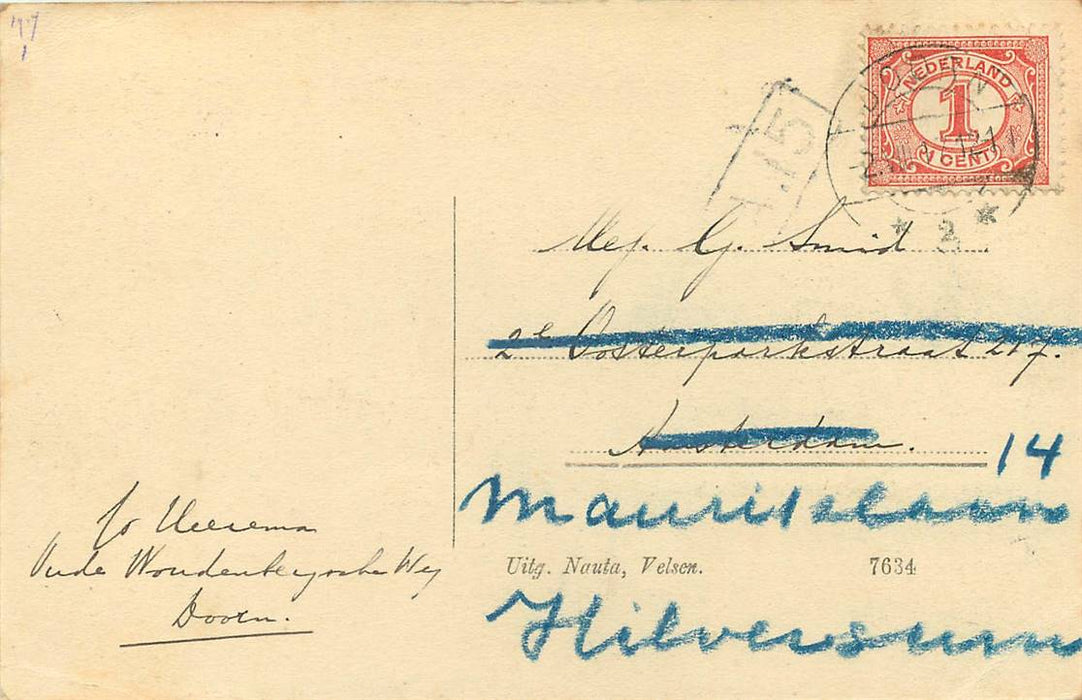 NEDERLAND
1
1 CENT
1.15
2
Mej. G. Smid
2e Oosterparkstraat 217.
Amsterdam.
14
Mauritslaan
Jo Heerema
Oude Woudenbergsche Weg
Doorn.
Uitg. Nauta, Velsen.
7634
Hilversum